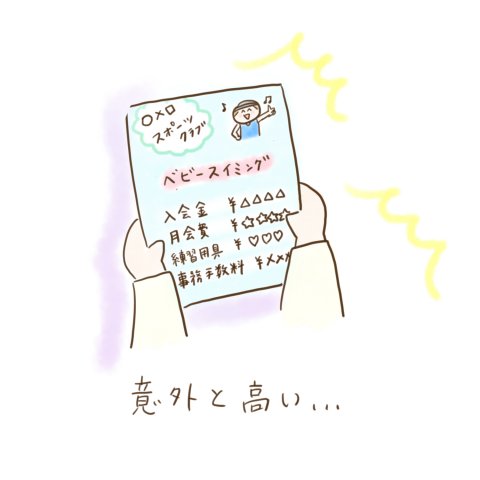 ○×□
スポーツ
クラブ
ベビースイミング
入会金 ¥△△△△
月会費 ¥☆☆☆☆
練習用具 ¥♡♡♡
事務手数料 ¥×××
意外と高い...